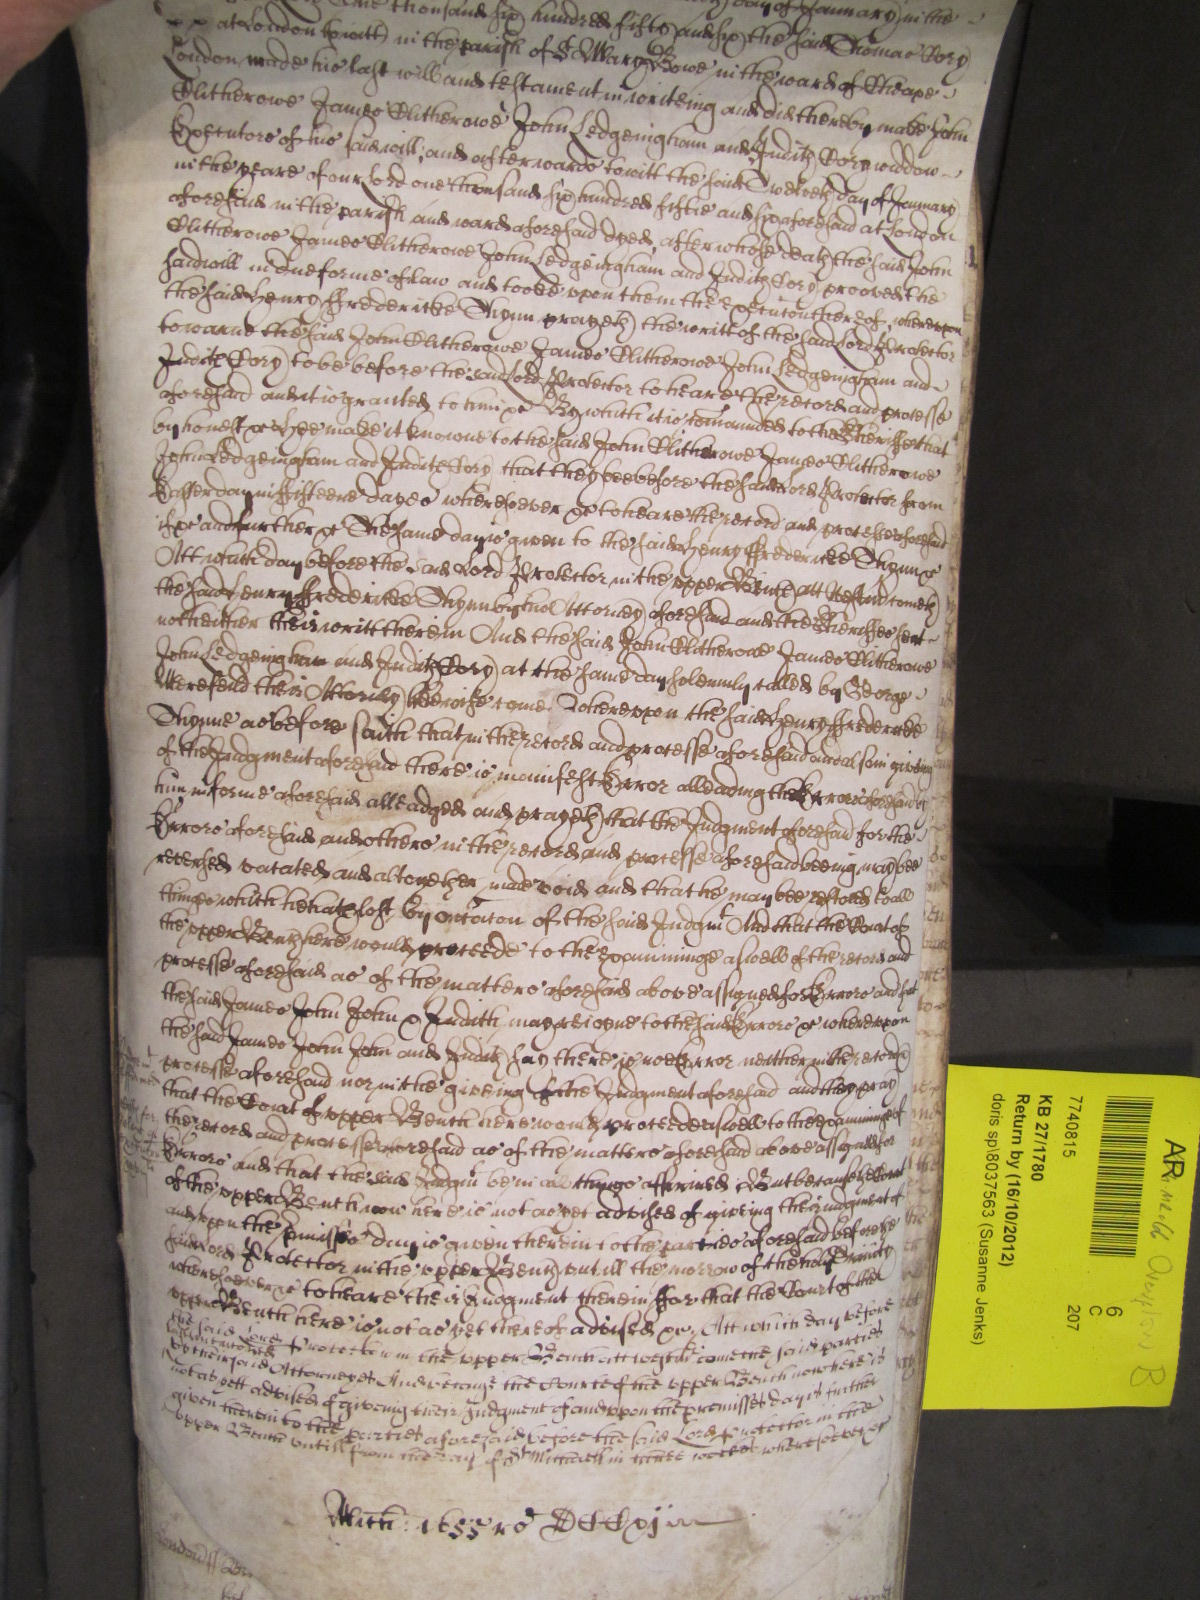 one thousand six hundred fifty and six the said Thomas Cory
at London to witt in the parish of St Mary Bowe in the ward of Cheape
London, made his last will and testament in writeing and did thereby make John
Clitherowe James Clitherowe John Ledgeingham and Judith Cory widdow
Executors of his said will, and afterwards to witt the said Twelveth day of January
in the yeare of our Lord one thousand six hundred fiftie and six aforesaid at London
aforesaid in the parish and ward aforesaid dyed, after whose death the said John
Clitherowe James Clitherowe John Ledgeingham and Judith Cory prooved the
said will in due forme of law and tooke upon them the execution thereof, whereupon
the said Henry Ffredericke Thynn prayeth the writt of the said Lord Protector
to warne the said John Clitherowe James Clitherowe John Ledgeingham and
Judith Cory to be before the said Lord Protector to heare the record and processe
aforesaid and it is granted to him &c By which it is comanded to the Sheriffe that
by honest &c hee make it knowne to the said John Clitherowe James Clitherowe
John Ledgeingham and Judith Cory that they bee before the said Lord Protector from
Easter day in fifteene dayes wheresoever &c to heare the record and processe aforesaid
if &c and further &c The same day is given to the said Henry Ffredericke Thynn &c
Att which day before the said Lord Protector in the upper Bench att Westm cometh
the said Henry Ffredericke Thynn by his Attorney aforesaid and the Sheriffes sent
not their writt therein And the said John Clitherowe James Clitherowe
John Ledgeingham and Judith Cory at the same day solemnly called by George
Mereseild their Attorney likewise come Whereupon the said Henry Ffredericke
Thynne as before saith that in the record and processe aforesaid and also in giveing
of the Judgment aforesaid there is manifest Error alleadging the Errors aforesaid by
him in forme aforesaid alleadged and prayeth that the Judgment aforesaid for the
Errors aforesaid and others in the record and processe aforesaid beeing may bee
reversed vacated and altogether made void and that he may bee restored to all
things which he hath lost by occasion of the said Judgmt And that the Court of
the upper Bench here would proceede to the examininge as well of the record and
processe aforesaid as of the matters aforesaid above assigned for Errors and that
the said James John John & Judith may reioyne to the said Errors &c whereupon
the said James John John and Judith say there is noe Error neither in the record &
processe aforesaid nor in the giveing of the Judgment aforesaid and they pray
that the Court of upper Bench here would proceed as well to the examining of
the record and processe aforesaid as of the matters aforesaid above assigned for
Errors and that the said Judgmt be in all things affirmed But because the Court
of the upper Bench now here is not as yet advised of giveing their Judgment of
and upon the premisses day is given therein to the parties aforesaid before the
said Lord Protector in the upper Bench untill the morrow of the holy Trinity
wheresoever &c to heare their Judgment therein ffor that the Court of the
upper Bench here is not as yet thereof advised &c, Att which day before
the said Lord Protector in the upper Bench att Westm come the said parties
by their said Attorneyes And because the Courte of the upper Bench now here is
not as yett advised of giveing their Judgment of and upon the premisses day is further
given therein to the parties aforesaid before the said Lord Protector in the
upper Bench untill from the day of St Michaell in three weekes wheresoever &c
Mich: 1655 ro DCCxij
London ss
AR
6
C
207
7740815
KB 27/1780
Return by (16/10/2012)
doris sp\8037563 (Susanne Jenks)
B